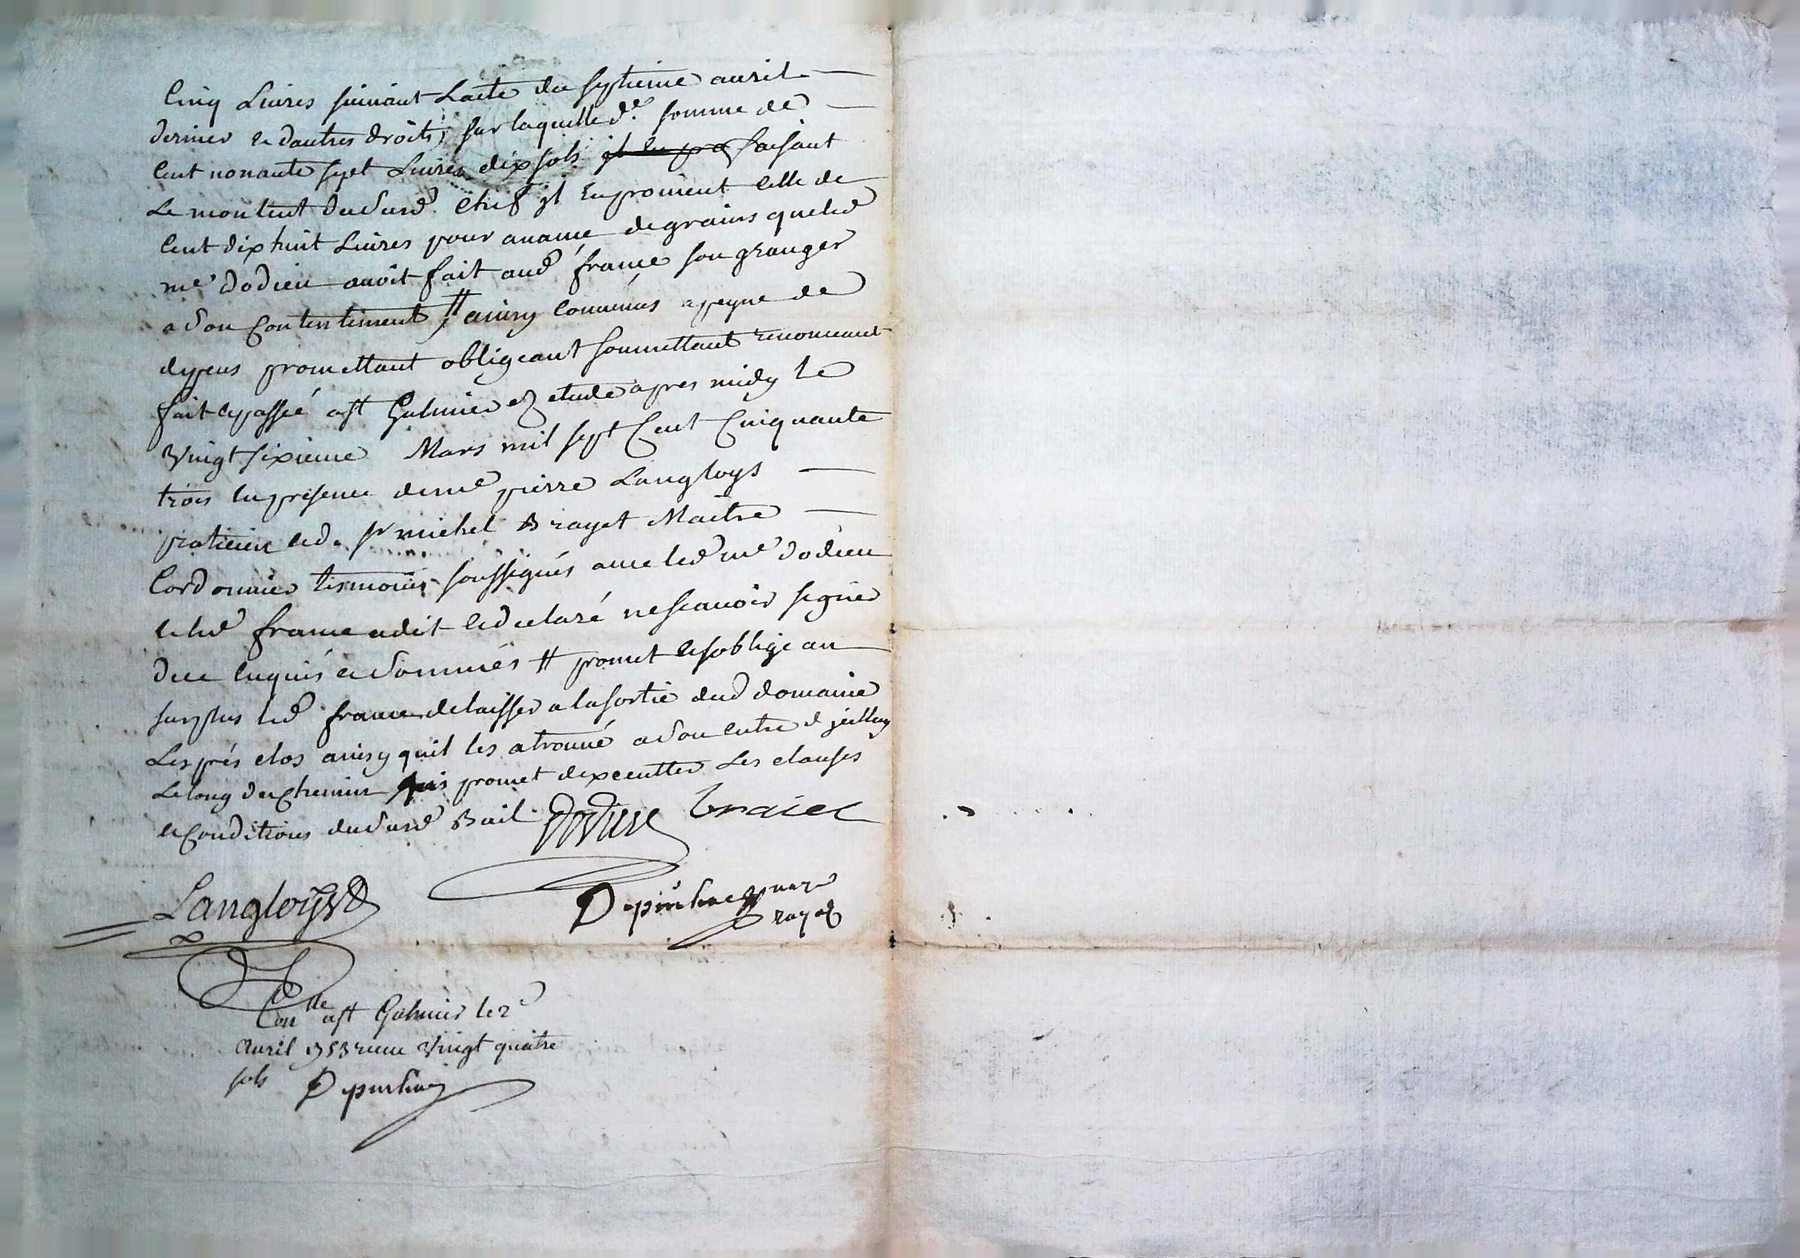 Cinq Livres suivant Lacte du septieme avril
dernier & dautres droits, sur laquelle de. somme de
Cent nonante sept Livres dix sols faisant
Le montent dud surd. Cheps jl En provient celle de
Cent dix huit Livres pour avance de grains que led
me dodieu avoit fait aud france son granger
a son Contentement # ainsy convenus a peyne de
depens promettant obligeant soumettant renonceant
fait & passé a st Galmier ez etude apres midy le
Vingt sixieme Mars mil sept Cent Cinquante
trois en presence de me pierre Langloys
praticien & d. sr michel Brayet Maitre
Cordonnier tesmoins soussignés avec led me dodieu
& led france a dit & declaré ne scavoir signer
de ce enquis & sommés # promet & s'oblige au
surplus led france de laisser a la sortie dud domaine
Les prés clos ainsy quil les a trouvé a son entré
Le long du chemin promet dexecutter Les clauses
& Conditions dud surd Bail
Dodieu braiet
Langloys
Depinhac nore
royal
Conlle a st Galmier le 2e
Avril 1753 receu Vingt quatre
sols Depinhac